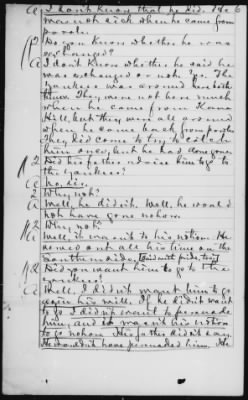 A I don't know that he did. He 6
was not sick when he came from
parole.
Q Do you know whether he was
exchanged?
A I don't know whether he said he
was exchanged or not. The
Yankees was around here both
times. They were not here much
when he came from
Hill, but they were all around
when he came back from parole.
They did come to try to catch
him once, but he had done gone.
Q Did his father advise him to go to
the Yankees?
A No, sir.
Q Why not?
A Well, he didn't. Well, he would
not have gone nohow.
Q Why not?
A Well, it wasn't to his notion. He
served out all his time on the
Southern side,
Q Did you want him to go to the
Yankees?
A Well, I didn't want him to go
agin his will. If he didn't want
to go I didn't want to persuade
him, and it wasn't his notion
to go nohow. His father didn't say.
He couldn't have persuaded him. He